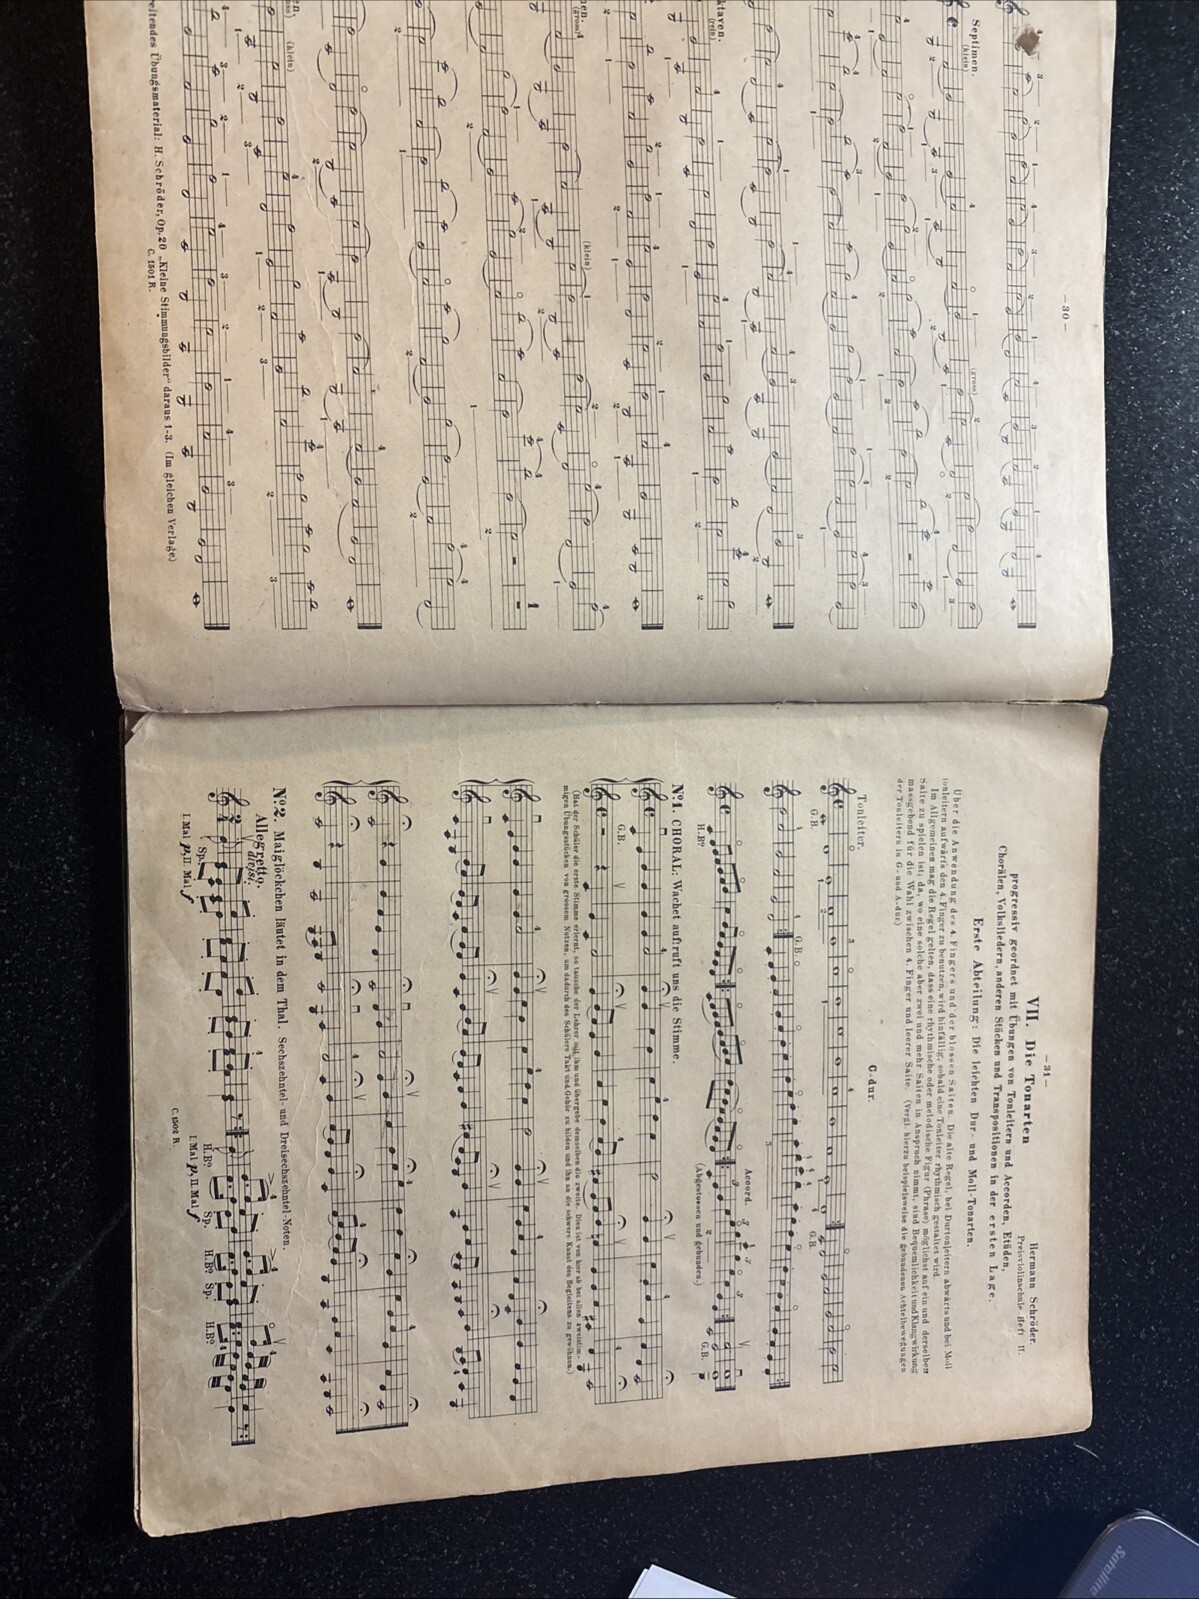 — 30 —
Septimen.
(klein)
(gross)
(rein)
(klein)
(gross)
(klein)
H. Schröder, Op. 20 „Kleine Stimmungsbilder“ daraus 1-3. (Im gleichen Verlage)
C. 1501 R.
— 31 —
VII. Die Tonarten
Hermann Schröder.
Preisviolinschule Heft II.
progressiv geordnet mit Übungen von Tonleitern und Accorden, Etüden,
Chorälen, Volksliedern, anderen Stücken und Transpositionen in der ersten Lage.
Erste Abteilung: Die leichten Dur- und Moll-Tonarten.
Über die Anwendung des 4. Fingers und der blossen Saiten. Die alte Regel, bei Durtonleitern abwärts und bei Moll
tonleitern aufwärts den 4. Finger zu benutzen, wird hinfällig, sobald eine Tonleiter rhythmisch gestaltet wird.
Im Allgemeinen mag die Regel gelten, dass eine rhythmische oder melodische Figur (Phrase) möglichst auf ein und derselben
Saite zu spielen ist; da, wo eine solche aber zwei und mehr Saiten in Anspruch nimmt, sind Bequemlichkeit und Klangwirkung
massgebend für die Wahl zwischen 4. Finger und leerer Saite. (Vergl. hierzu beispielsweise die gebundenen Achtelbewegungen
der Tonleitern in G- und A-dur.)
C-dur.
Tonleiter.
G.B.
G.B.
G.B.
Accord.
H.Bº
(Abgestossen und gebunden.)
G.B.
Nº 1. CHORAL: Wachet auf! ruft uns die Stimme.
G.B.
(Hat der Schüler die erste Stimme erlernt, so tausche der Lehrer mit ihm und übergebe demselben die zweite. Dies ist von hier ab bei allen zweistim-
migen Übungsstücken von grossem Nutzen, um dadurch des Schülers Takt und Gehör zu bilden und ihn an die schwere Kunst des Begleitens zu gewöhnen.)
Nº 2. Maiglöckchen läutet in dem Thal. Sechszehntel- und Dreisechszehntel-Noten.
Allegretto.
divisi.
Sp.
I. Mal p, II. Mal f
H.Bº
Sp.
H.Bº
Sp.
H.Bº
I. Mal p, II. Mal f
C. 1502 R.
Satellite